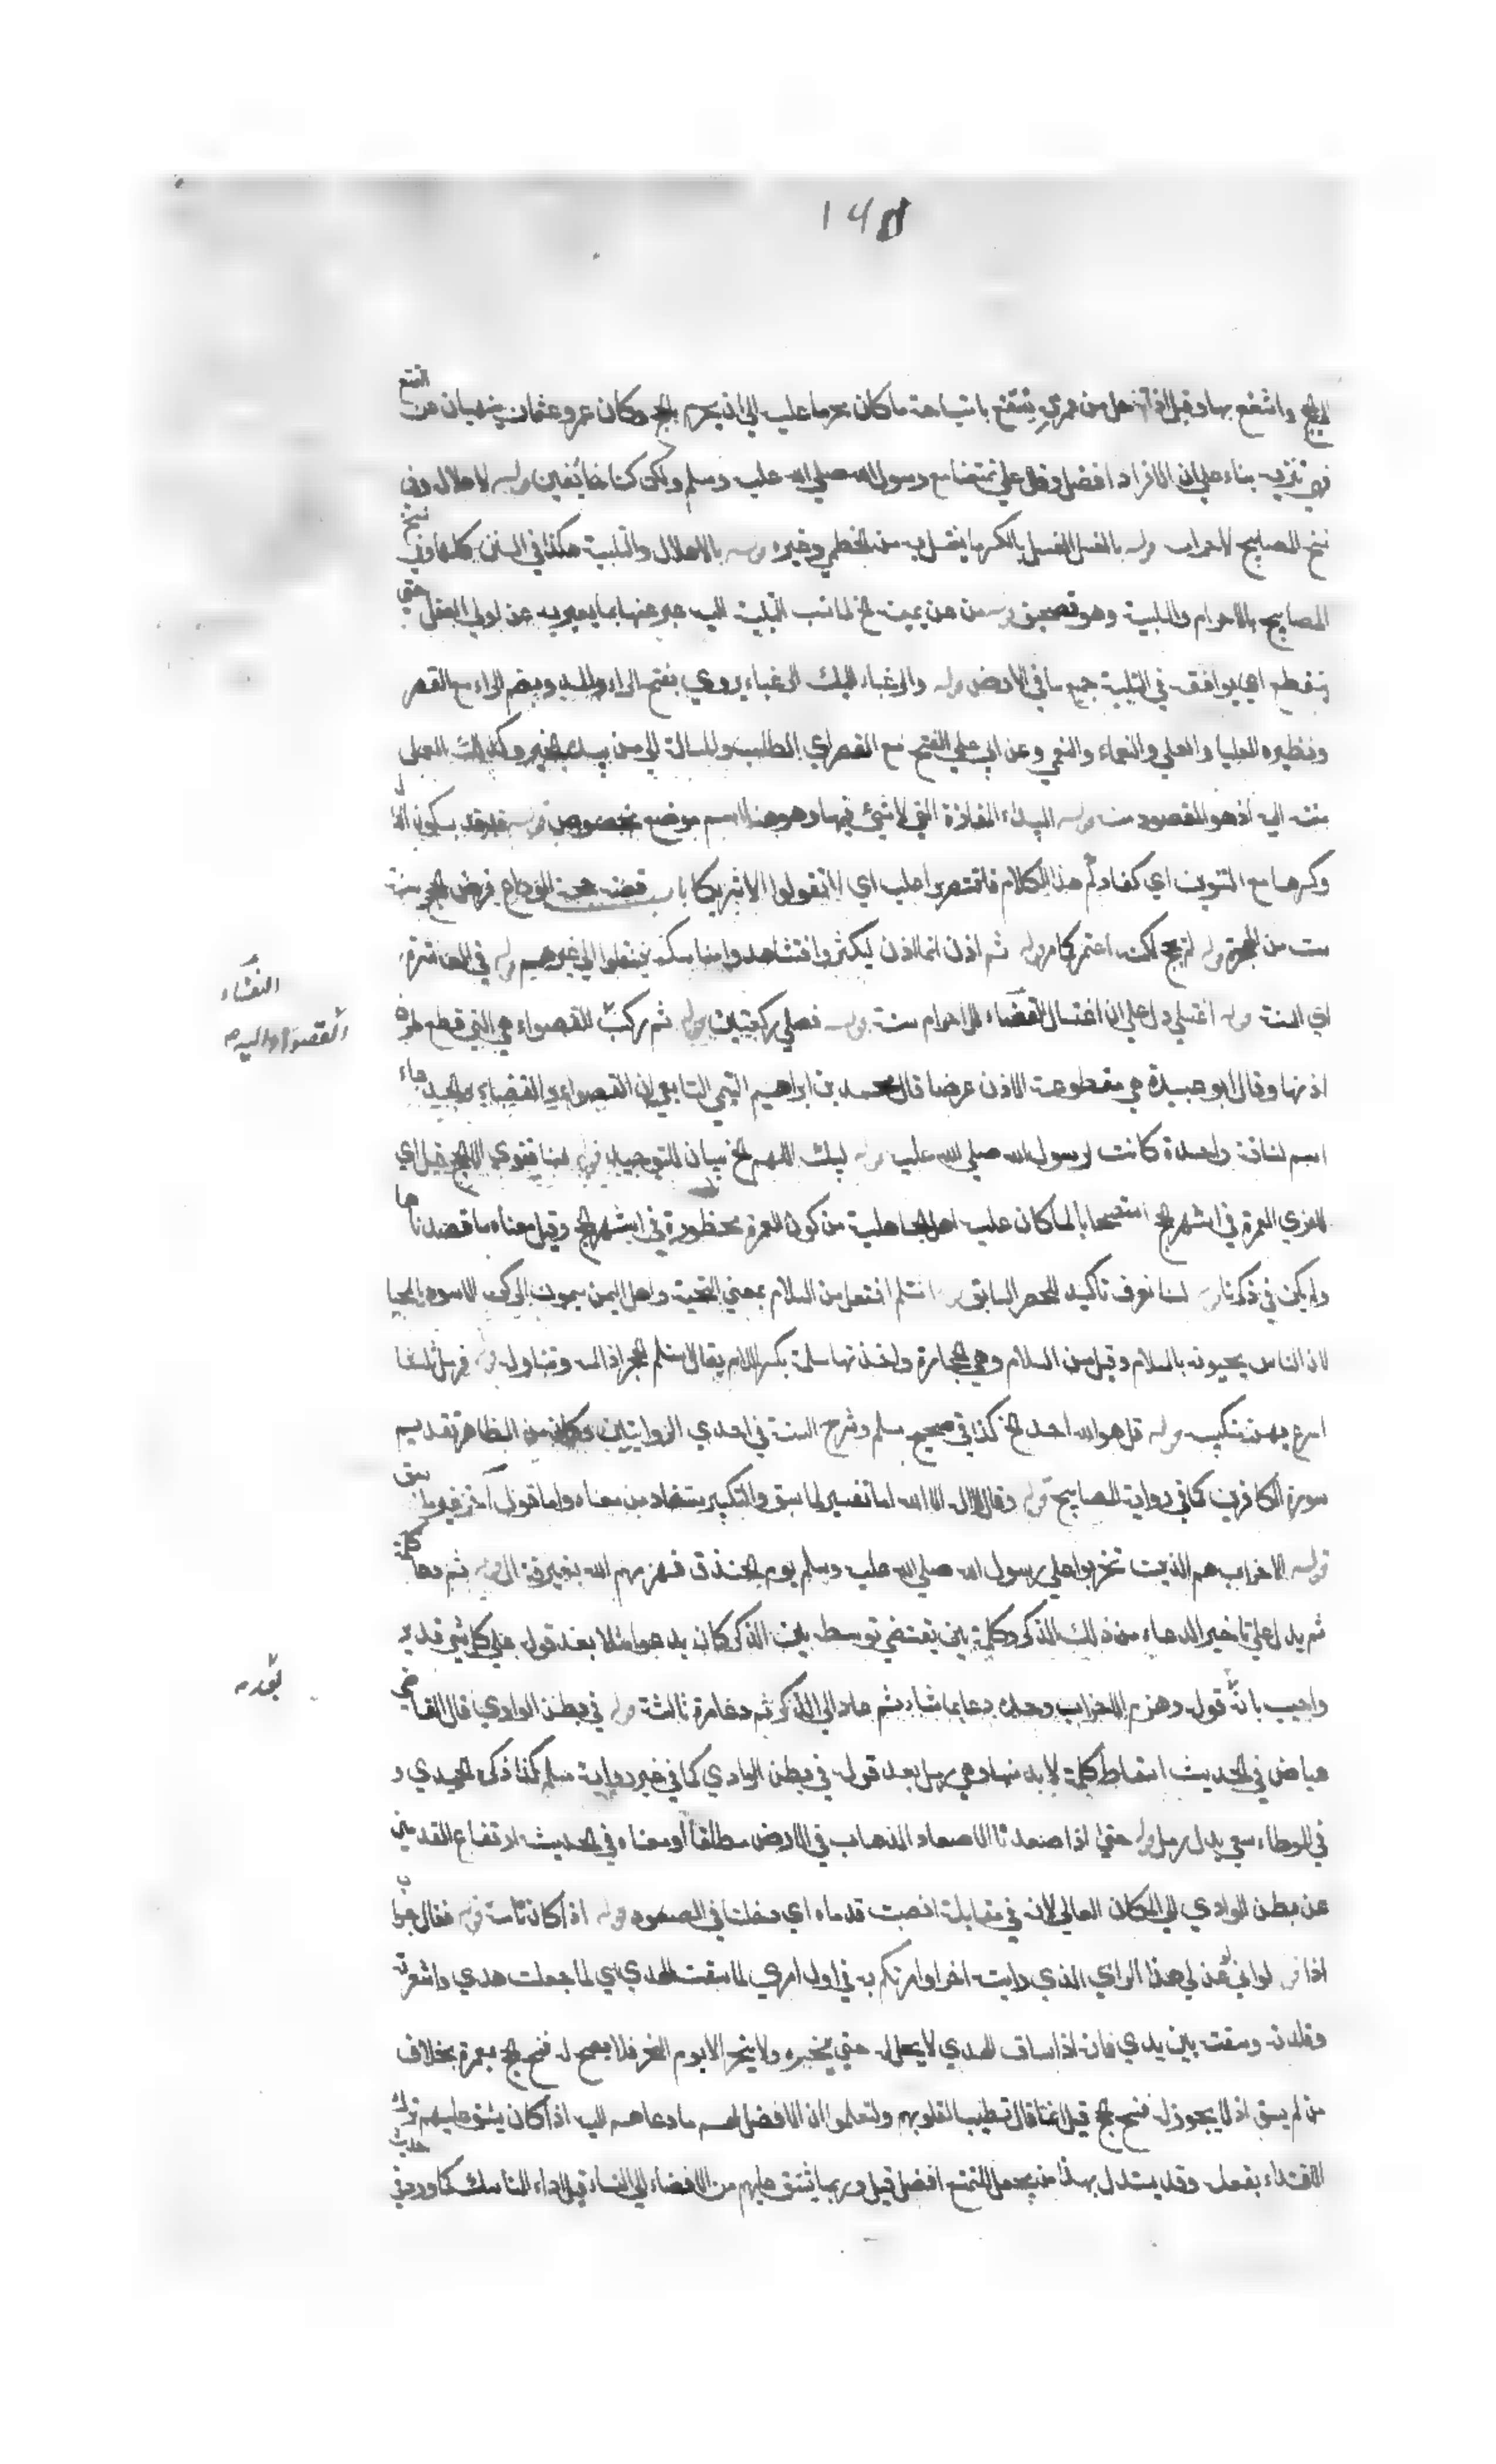 الحج وانتفع بها وقيل اذا حل من عمرته ينتفع باستباحة ما كان محرما عليه الي ان يحرم بالحج وكان عمر وعثمان ينهيان عن التمتع
نهي تنزيه بناء علي ان الافراد افضل وقال علي تمتعنا مع رسول الله صلي الله عليه وسلم ولكن كنا خائفين قوله لاهلاله وفي
نسخ المصابيح لاحرامه قوله بالغسل الغسل بالكسر ما يغتسل به من الخطمي وغيره قوله بالاهلال والتلبية هكذا في السنن كلها وفي نسخ
المصابيح بالاحرام والتلبية وهو تصحيف قوله من عن يمينه الخ لما نسب التلبية اليه عبر عنها بما يعبر به عن اولي العقل حتي
ينقطع اي يوافقه في التلبية جميع ما في الارض قوله والرغباء اليك الرغباء يروي بفتح الراء والمد وبضم الراء مع القصر
ونظيره العليا والعلي والنعماء والنعمي وعن ابي علي الفتح مع القصر اي الطلب والمسالة الي من بيده الخير وكذلك العمل
منته اليه اذ هو المقصود منه قوله البيداء المفازة التي لا شيئ فيها وهو ههنا اسم موضع مخصوص قوله قد قد بسكون الدال
وكسرها مع التنوين اي كفاكم هذا الكلام فاقتصروا عليه اي لا تقولوا الا شريكا باب قصة حجة الوداع فرض الحج سنة
ست من الهجرة قوله لم يحج لكنه اعتمر كما مر قوله ثم اذن انما اذن ليكثروا فتشاهدوا مناسكه فينقلوا الي غيرهم قوله في العاشرة
اي السنة قوله اغتسلي دل علي ان اغتسال النفساء للاحرام سنة قوله فصلي ركعتين قوله ثم ركب القصواء هي التي قطع طرف
اذنها وقال ابو عبيدة هي مقطوعة الاذن عرضا قال محمد بن ابراهيم التيمي التابعي ان القصواء والعضباء والجدعاء
اسم لناقة واحدة كانت لرسول الله صلي الله عليه قوله لبيك اللهم الخ بيان للتوحيد قوله لسنا ننوي الا الحج قيل اي
لا نري العمرة في اشهر الحج استصحابا لما كان عليه اهل الجاهلية من كون العمرة محظورة في اشهر الحج وقيل معناه ما قصدناها
ولم يكن في ذكرنا قوله لسنا نعرف تاكيد للحصر السابق قوله استلم افتعل من السلام بمعني التحية واهل اليمن يسمون الركن الاسود المحيا
لان الناس يحيونه بالسلام وقيل من السلام وهي الحجارة واحدتها سلمة بكسر اللام يقال استلم الحجر اذا لمسه وتناوله قوله فرمل ثلاثا
اسرع يهز منكبيه قوله قل هو الله احد الخ كذا في صحيح مسلم وشرح السنة في احدي الروايتين وكان من الظاهر تقديم
سورة الكافرين كما في رواية المصابيح قوله وقال لا اله الا الله اما تفسير لما سبق والتكبير مستفاد من معناه واما قول آخر غير ما سبق
قوله الاحزاب هم الذين تحزبوا علي رسول الله صلي الله عليه وسلم يوم الخندق فهزمهم الله بغير قتال قوله ثم دعا كلمة
ثم يدل علي تاخير الدعاء من ذلك الذكر وكلمة بين يقتضي توسطه بين الذكر كان يدعو مثلا بعد قوله علي كل شيئ قدير
واجيب بان قوله وهزم الاحزاب وحده دعا بما شاء ثم عاد الي الذكر ثم دعا مرة ثالثة قوله في بطن الوادي قال القاضي
عياض في الحديث اسقاط كلمة لا بد منها وهي رمل بعد قوله في بطن الوادي كما في غير رواية مسلم كذا ذكره الحميدي و
في الموطاء سعي بدل رمل قوله حتي اذا صعدتا الاصعاد الذهاب في الارض مطلقا ومعناه في الحديث ارتفاع القدمين
عن بطن الوادي الي المكان العالي لانه في مقابلة انصبت قدماه اي دخلتا في الصعود قوله اذا كان تامة قوله فقال جواب
اذا قوله لو اني عن لي هذا الراي الذي رايت اخرا وامرتكم به في اول امري لما سقت الهدي اي لما جعلت هدي واشعرته
وقلدته وسقته بين يدي فانه اذا ساق الهدي لا يحل له حتي ينحره ولا ينحر الا يوم النحر فلا يصح له فسخ الحج بعمرة بخلاف
من لم يسق اذ لا يجوز له فسخ الحج قيل انما قال تطييبا لقلوبهم وليعلموا ان الافضل لهم ما دعاهم اليه اذ كان يشق عليهم ترك
الاقتداء بفعله وقد يستدل بهذا من يجعل التمتع افضل قيل وربما يشق عليهم من الافضاء الي النساء قبل اداء المناسك كما ورد في حديث
النفساء
القصواء